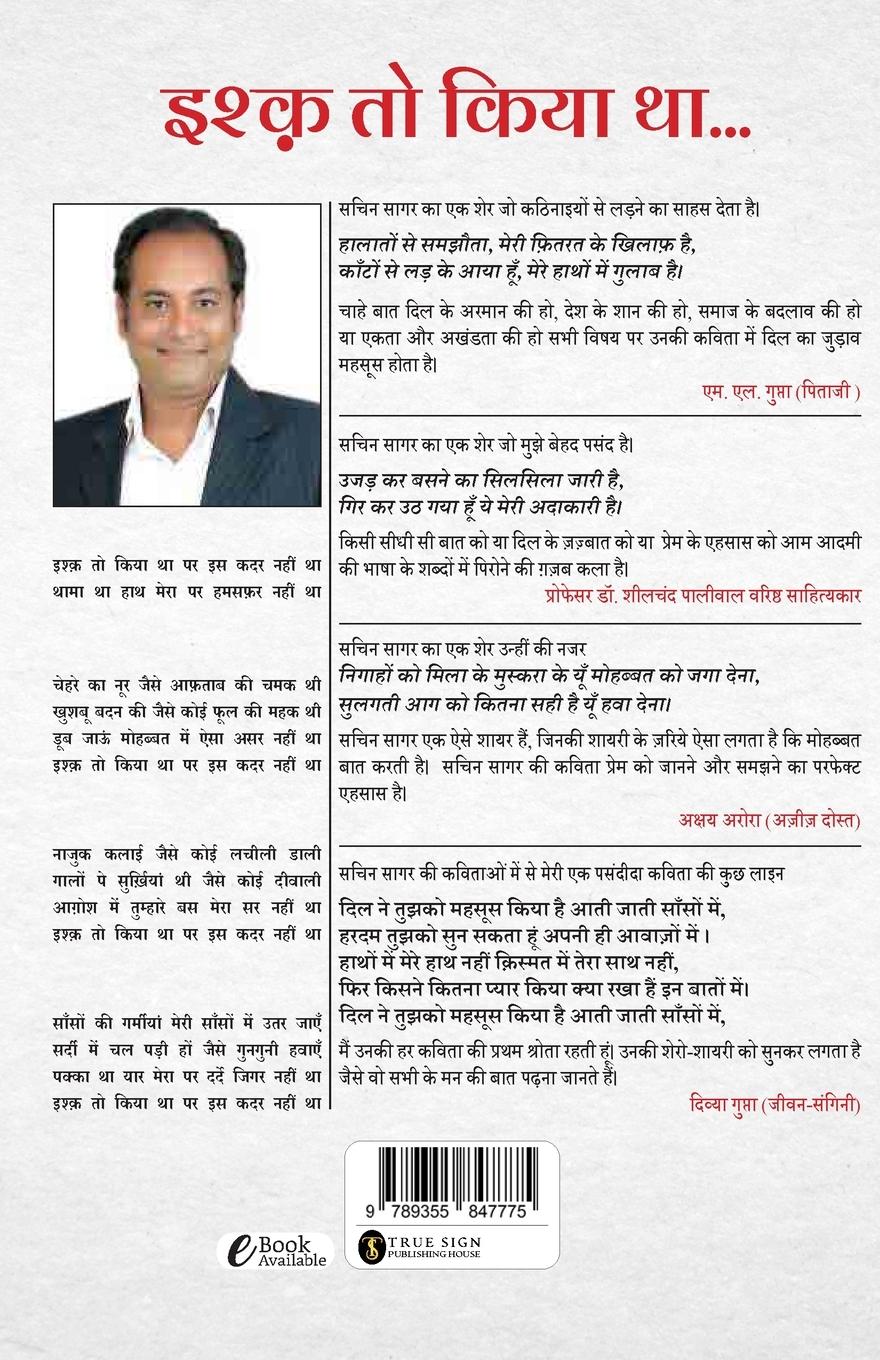 इश्क़ तो किया था...
इश्क़ तो किया था पर इस कदर नहीं था
थामा था हाथ मेरा पर हमसफ़र नहीं था
चेहरे का नूर जैसे आफ़ताब की चमक थी
खुशबू बदन की जैसे कोई फूल की महक थी
डूब जाऊं मोहब्बत में ऐसा असर नहीं था
इश्क़ तो किया था पर इस कदर नहीं था
नाजुक कलाई जैसे कोई लचीली डाली
गालों पे सुर्ख़ियां थी जैसे कोई दीवाली
आग़ोश में तुम्हारे बस मेरा सर नहीं था
इश्क़ तो किया था पर इस कदर नहीं था
साँसों की गर्मीयां मेरी साँसों में उतर जाएँ
सर्दी में चल पड़ी हों जैसे गुनगुनी हवाएँ
पक्का था यार मेरा पर दर्दे जिगर नहीं था
इश्क़ तो किया था पर इस कदर नहीं था
सचिन सागर का एक शेर जो कठिनाइयों से लड़ने का साहस देता है।
हालातों से समझौता, मेरी फ़ितरत के खिलाफ़ है,
काँटों से लड़ के आया हूँ, मेरे हाथों में गुलाब है।
चाहे बात दिल के अरमान की हो, देश के शान की हो, समाज के बदलाव की हो
या एकता और अखंडता की हो सभी विषय पर उनकी कविता में दिल का जुड़ाव
महसूस होता है।
एम. एल. गुप्ता (पिताजी )
सचिन सागर का एक शेर जो मुझे बेहद पसंद है।
उजड़ कर बसने का सिलसिला जारी है,
गिर कर उठ गया हूँ ये मेरी अदाकारी है।
किसी सीधी सी बात को या दिल के ज़ज़्बात को या प्रेम के एहसास को आम आदमी
की भाषा के शब्दों में पिरोने की ग़ज़ब कला है।
प्रोफेसर डॉ. शीलचंद पालीवाल वरिष्ठ साहित्यकार
सचिन सागर का एक शेर उन्हीं की नजर
निगाहों को मिला के मुस्करा के यूँ मोहब्बत को जगा देना,
सुलगती आग को कितना सही है यूँ हवा देना।
सचिन सागर एक ऐसे शायर हैं, जिनकी शायरी के ज़रिये ऐसा लगता है कि मोहब्बत
बात करती है। सचिन सागर की कविता प्रेम को जानने और समझने का परफेक्ट
एहसास है।
अक्षय अरोरा (अज़ीज़ दोस्त)
सचिन सागर की कविताओं में से मेरी एक पसंदीदा कविता की कुछ लाइन
दिल ने तुझको महसूस किया है आती जाती साँसों में,
हरदम तुझको सुन सकता हूं अपनी ही आवाज़ों में ।
हाथों में मेरे हाथ नहीं क़िस्मत में तेरा साथ नहीं,
फिर किसने कितना प्यार किया क्या रखा हैं इन बातों में।
दिल ने तुझको महसूस किया है आती जाती साँसों में,
मैं उनकी हर कविता की प्रथम श्रोता रहती हूं। उनकी शेरो-शायरी को सुनकर लगता है
जैसे वो सभी के मन की बात पढ़ना जानते हैं।
दिव्या गुप्ता (जीवन-संगिनी)
9 789355 847775
TRUE SIGN
PUBLISHING HOUSE
eBook
Available